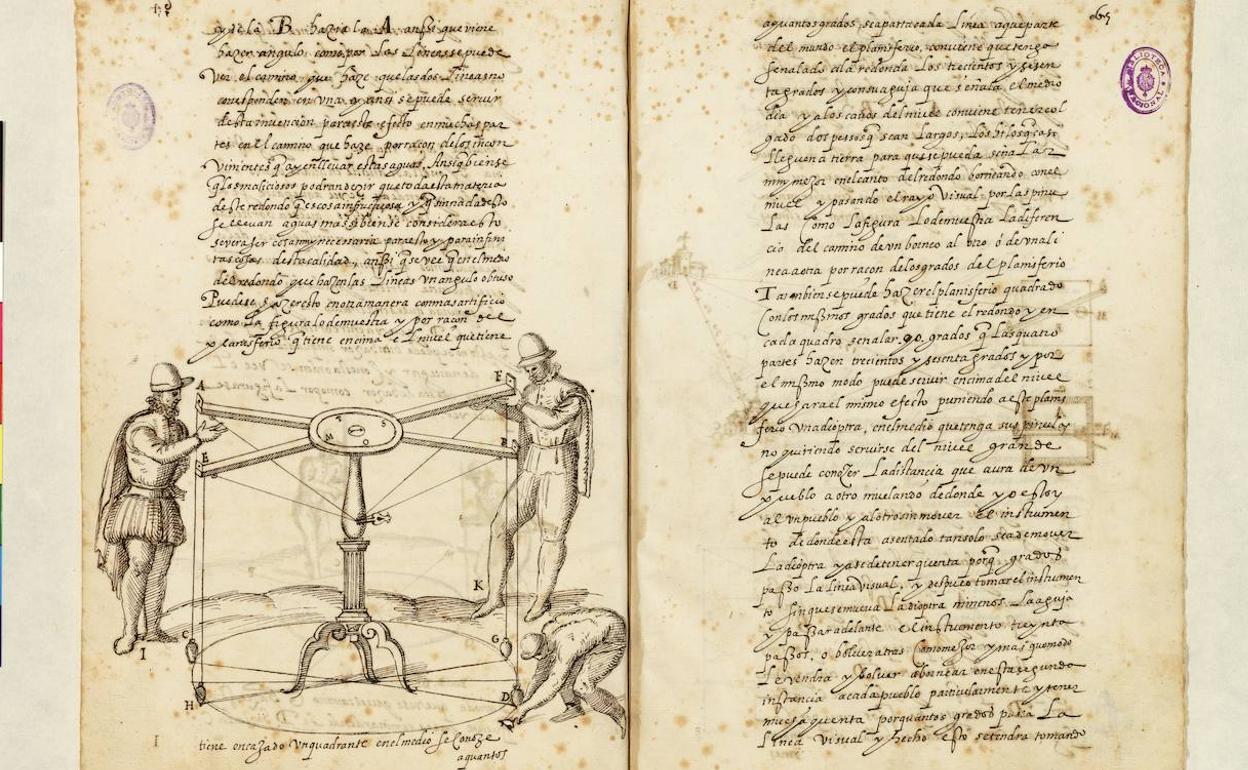 y de la B hazia la A ansi que viene
hazer angulo como por las lineas se puede
ver el camino que haze que las dos lineas no
corresponden en una y ansi se puede servir
desta invencion para este efecto en muchas par
tes en el camino que haze por raçon de los incon
vinientes q̃ ay en llevar estas aguas. Ansi q̃ biense
q̃ los maliciosos podran dezir que toda esta materia
de este redondo q̃ es cosa infructuosa y q̃ sin nada desto
se llevan aguas mas si biense considera esto
se vera ser cosa muy necessaria para esto y para infini
tas cosas desta calidad, ansi q̃ se vee q̃ en el medio
del redondo que hazen las lineas un angulo obtuso
Puedese hazer esto en otra manera con mas artificio
como la figura lo demuestra y por raçon del
q̃ tiene encima el nivel que tiene
A
F
M T S O
E
B
K
C
G
I
H
D
I
tiene encaxado un quadrante en el medio se conoze
aquantos
65
aquantos grados se aparta cada linea a que parte
del mundo el planisferio, conviene que tenga
señalado a la redonda los trecientos y sesen
ta grados y con su aguja que señala el medio
dia y a los cabos del nivel conviene tener col
gado dos pessos q̃ sean largos, los hilos q̃ casi
lleguen a tierra para que se pueda señalar
muy mejor en el canto del redondo borneando con el
nivel y pasando el rayo visual por las pinu
las como la figura lo demuestra la diferen
cia del camino de un borneo al otro ó de una li
nea a otra por raçon de los grados del planisferio
Tambien se puede hazer el planisferio quadrado
con los mismos grados que tiene el redondo y en
cada quadro señalar .90. grados q̃ las quatro
partes hazen trecientos y sesenta grados y por
el mismo modo puede servir encima del nivel
que hara el mismo efecto puniendo a este plani
sferio una dioptra, en el medio que tenga sus pinulas
no quiriendo servirse del nivel grande
se puede conozer la distancia que avra de un
pueblo a otro nivelando de donde yo estoy
al un pueblo y al otro sin mover el instrumen
to de donde esta asentado tan solo se a de mover
la dioptra y a se de tener quenta por q̃ grados
passo la linea visual, y despues tomar el instrumen
to sin que se mueva la dioptra ni menos la aguja
y passar adelante el instrumento treynta
passos, o bolver atras como mejor y mas comodo
le vendra y bolver a bornear en esta segunda
instancia a cada pueblo particularmente y tener
muy a quenta por quantos grados passa la
linea visual y hecho esto se tendra tomando
BIBLIOTECA NACIONAL